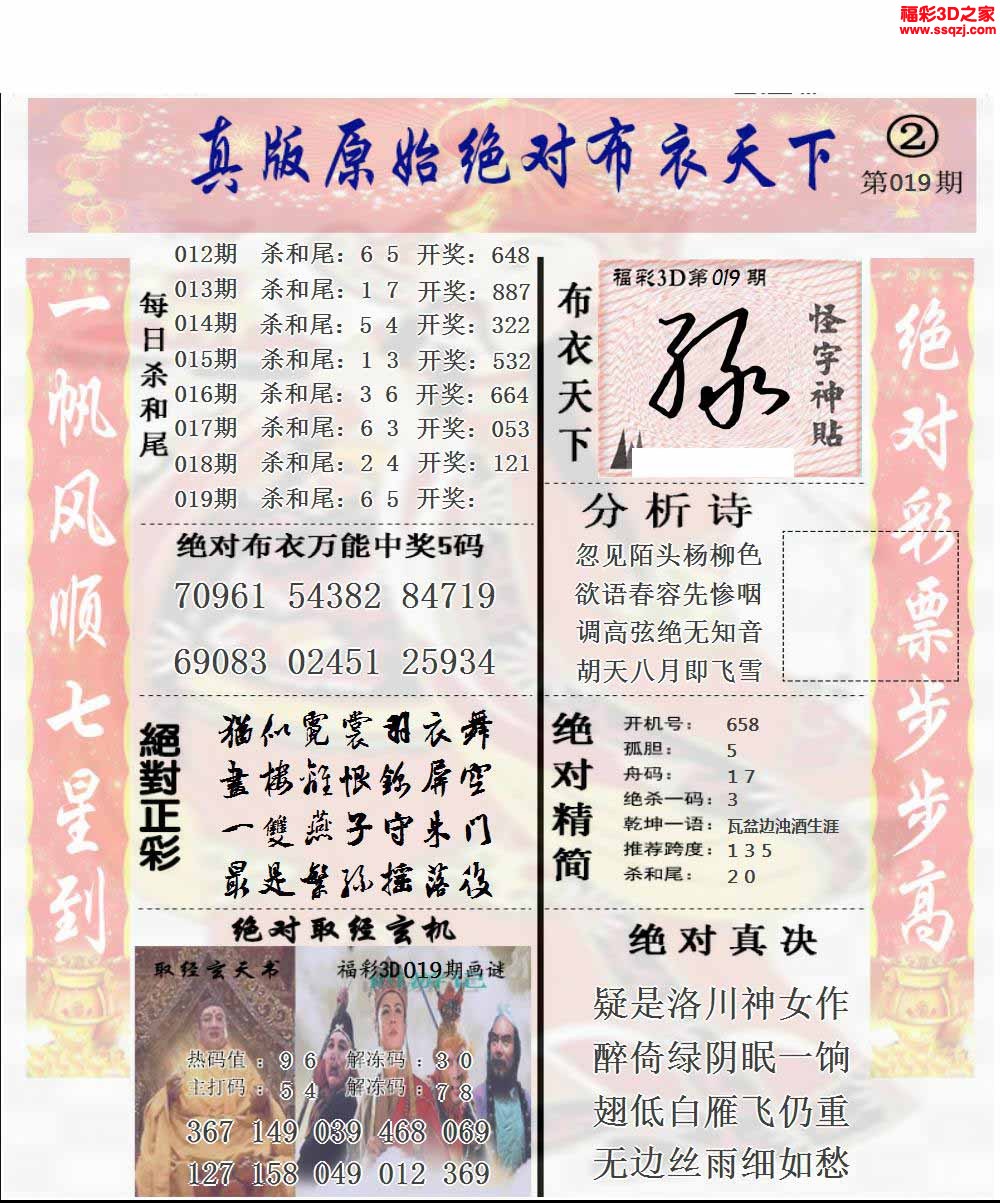 福彩3D之家
www.ssqzj.com
真版原始绝对布衣天下
②
第019期
一帆风顺七星到
每日杀和尾
012期 杀和尾：6 5 开奖：648
013期 杀和尾：1 7 开奖：887
014期 杀和尾：5 4 开奖：322
015期 杀和尾：1 3 开奖：532
016期 杀和尾：3 6 开奖：664
017期 杀和尾：6 3 开奖：053
018期 杀和尾：2 4 开奖：121
019期 杀和尾：6 5 开奖：
绝对布衣万能中奖5码
70961 54382 84719
69083 02451 25934
絕對正彩
犹似霓裳羽衣舞
畫楼離恨錦屏空
一雙燕子守朱门
最是繁
摇落後
绝对取经玄机
取经玄天书
福彩3D019期画谜
热码值：9 6 解冻码：3 0
主打码：5 4 解冻码：7 8
367 149 039 468 069
127 158 049 012 369
布衣天下
福彩3D第019期
怪字神貼
分析诗
忽见陌头杨柳色
欲语春容先惨咽
调高弦绝无知音
胡天八月即飞雪
绝对精简
开机号： 658
孤胆： 5
舟码： 1 7
绝杀一码：3
乾坤一语：瓦盆边浊酒生涯
推荐跨度：1 3 5
杀和尾： 2 0
绝对真决
疑是洛川神女作
醉倚绿阴眠一饷
翅低白雁飞仍重
无边丝雨细如愁
绝对彩票步步高